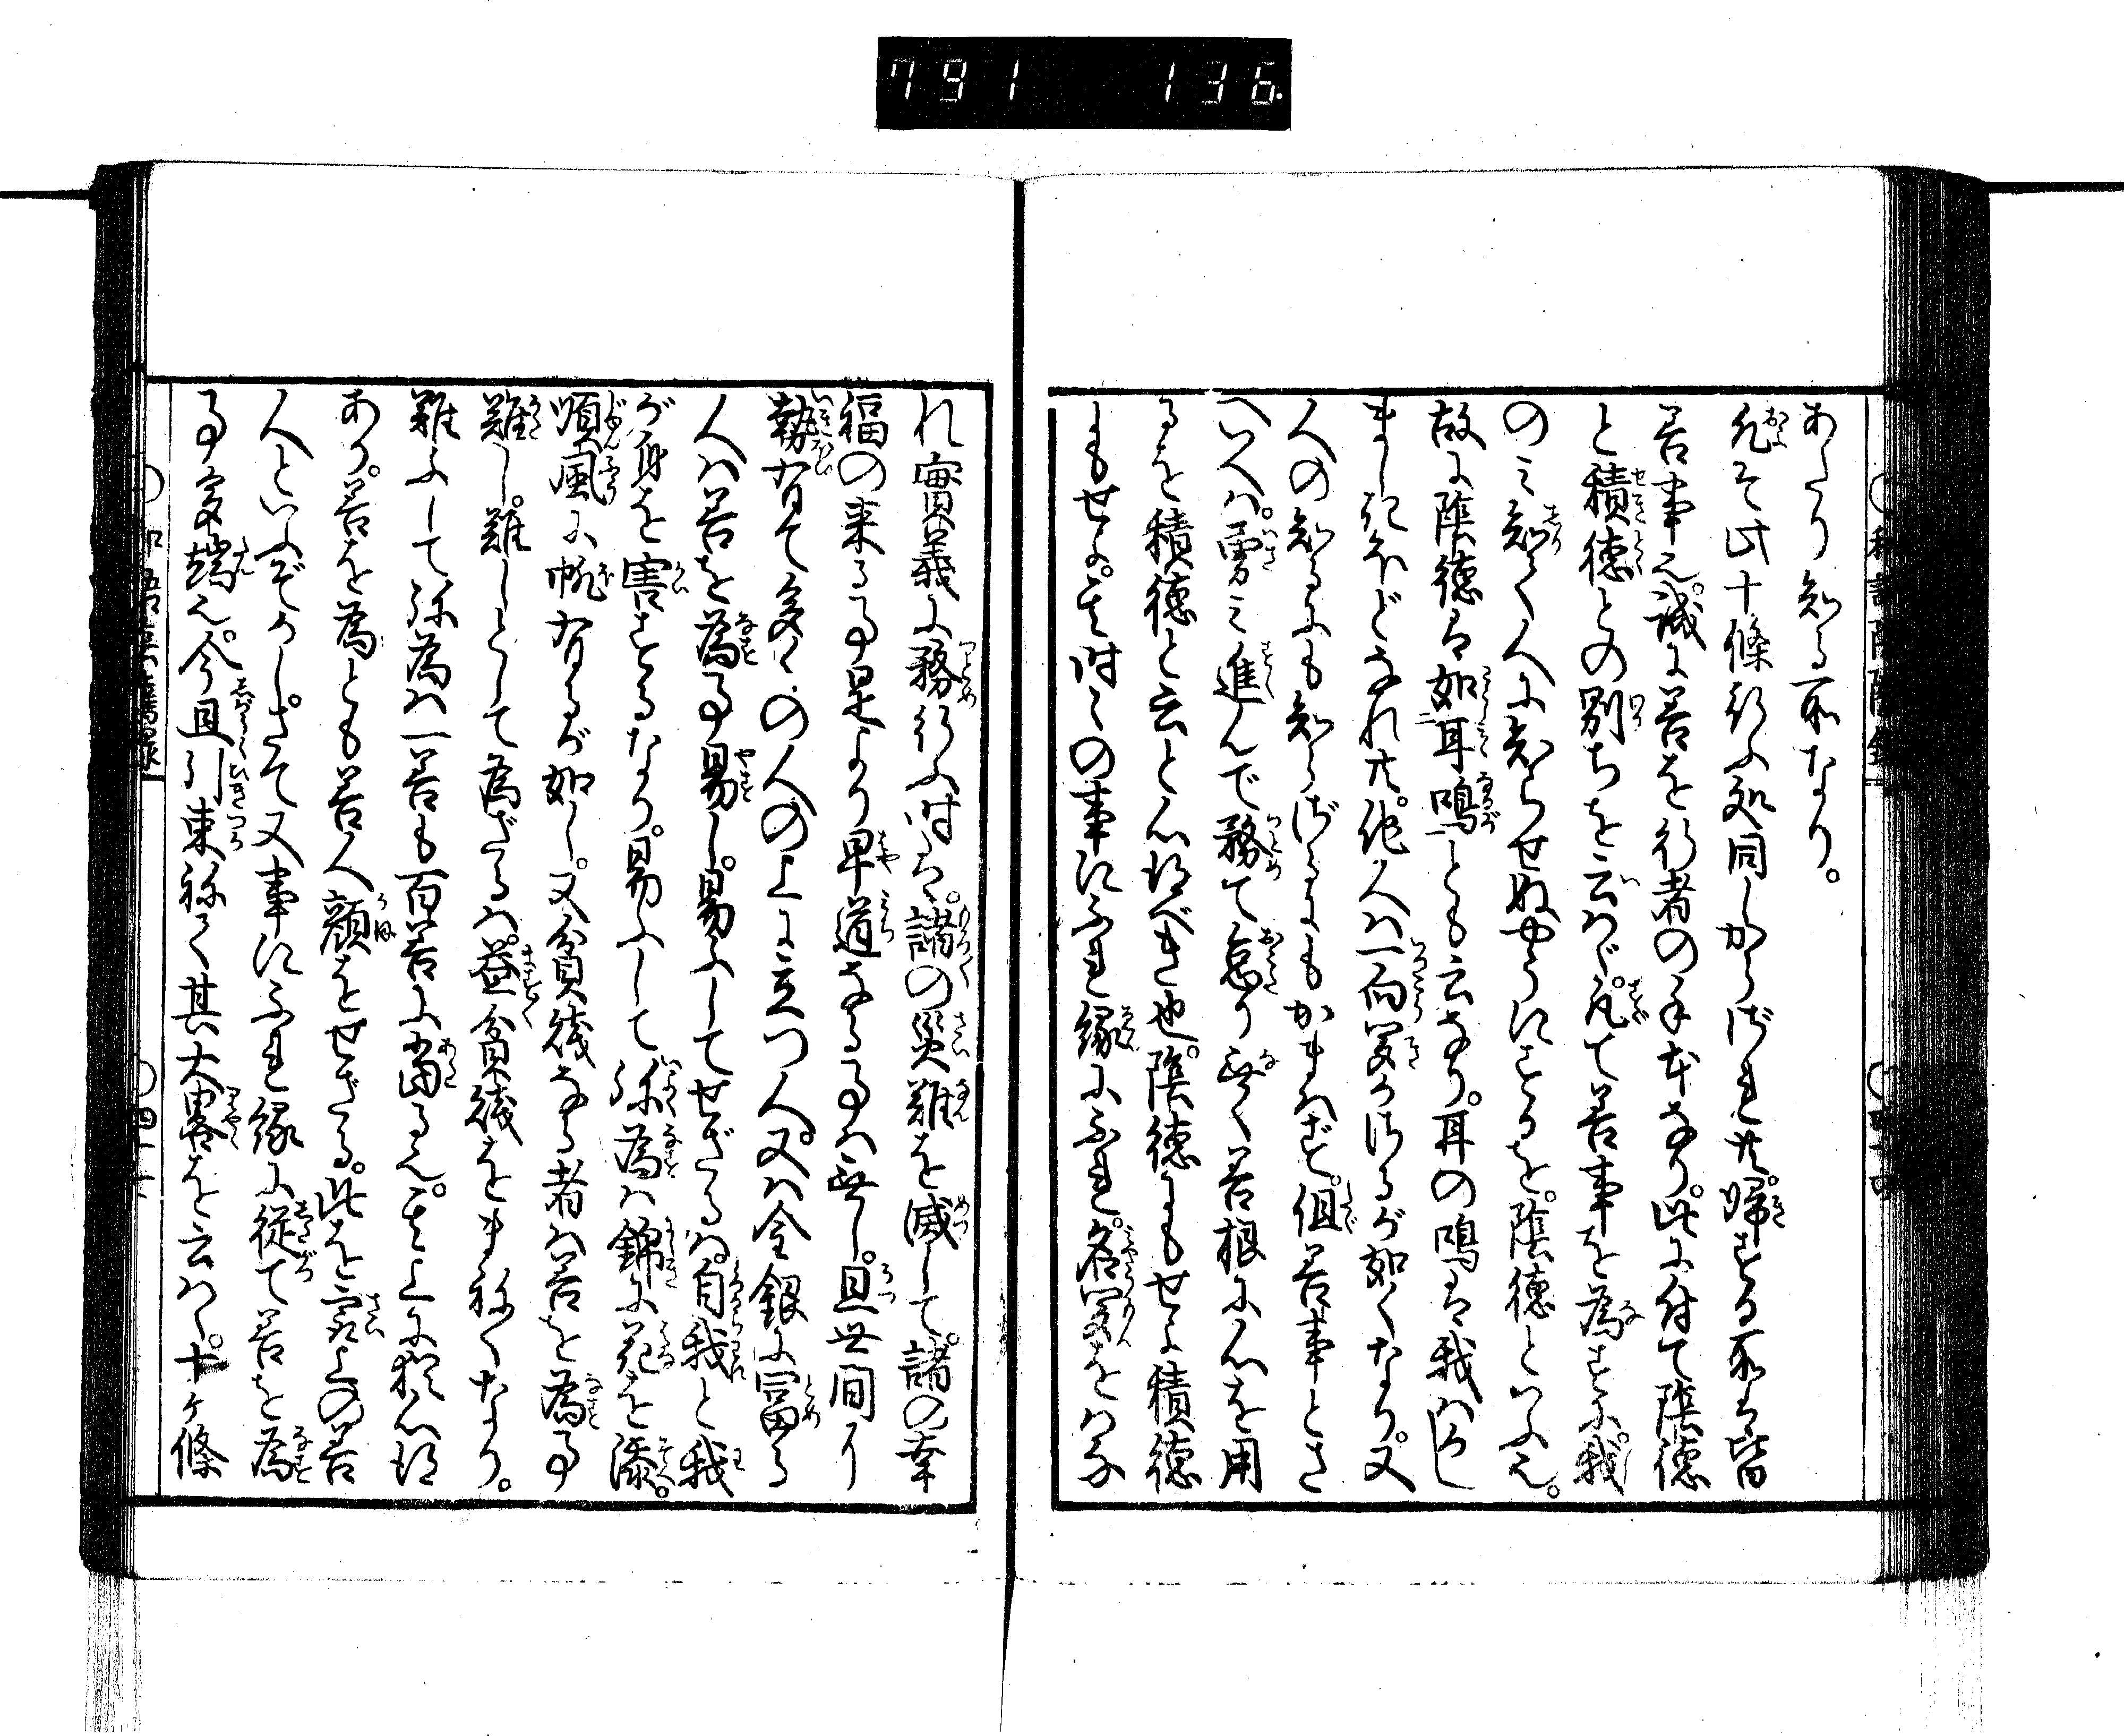 791 136
あたり知る所なり。
凡そ此十條行ふ処同しからざれ共。帰する所ハ皆
善事也。誠に善を行者の手本なり。此に付て陰徳
と積徳との別ちを云ハゞ。凡て善事を為すに。我
のミ知て人に知らせぬやうにするを。陰徳といふ也。
故に陰徳は如耳鳴とも云なり。耳の鳴は我ハ
ましきほどなれ共。他人ハ一向聞つけざるが如くなり。又
人の知るにも知らざるにもかまハず。但善事とさ
へいへバ。勇ミ進んで務て怠り無く善根に心を用
るを積徳と云と心得べき也。陰徳にもせよ積徳
にもせよ。其時々の事にふれ縁にふれ。名聞をはな
れ實義に務行ふ時は。諸の災難を滅して。諸の幸
福の来る事是より早道なる事ハ無し。且世間に
勢有て多くの人の上に立つ人。又ハ金銀に富る
人ハ善を為事易し。易ふしてせざるハ。自我と我
が身を害するなり。易ふして弥為ハ錦に花を添。
順風に帆有るが如し。又貧賤なる者ハ善を為事
難し。難しとて為ざるハ。益貧賤をまねくなり。
難ふして弥為ハ一善も百善に當る也。其上に猶心得
あり。善を為とも善人顔をせざる。此を最上の善
人といふぞかし。さて又事にふれ縁に従て善を為
事多端也。今且引束ねて其大畧を云ハく。十ヶ條